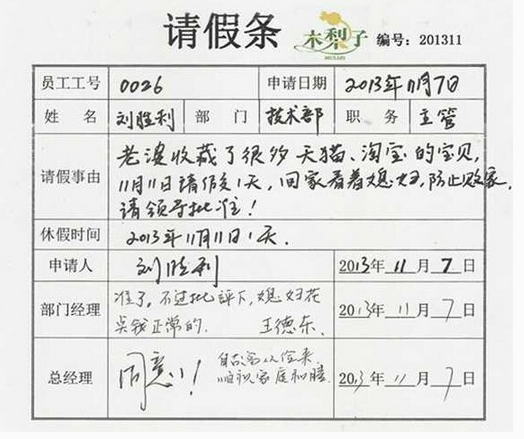 请假条
木梨子
MULIZI
编号：201311
员工工号 0026 申请日期 2013年11月7日
姓名 刘胜利 部门 技术部 职务 主管
请假事由
老婆收藏了很多天猫、淘宝的宝贝，
11月11日请假1天，回家看着媳妇，防止败家，
请领导批准！
休假时间 2013年11月11日1天。
申请人 刘胜利 2013年11月7日
部门经理
准了，不过批评下，媳妇花
点钱正常的. 王德东. 2013年11月7日
总经理
同意！
家庭和睦. 2013年11月7日